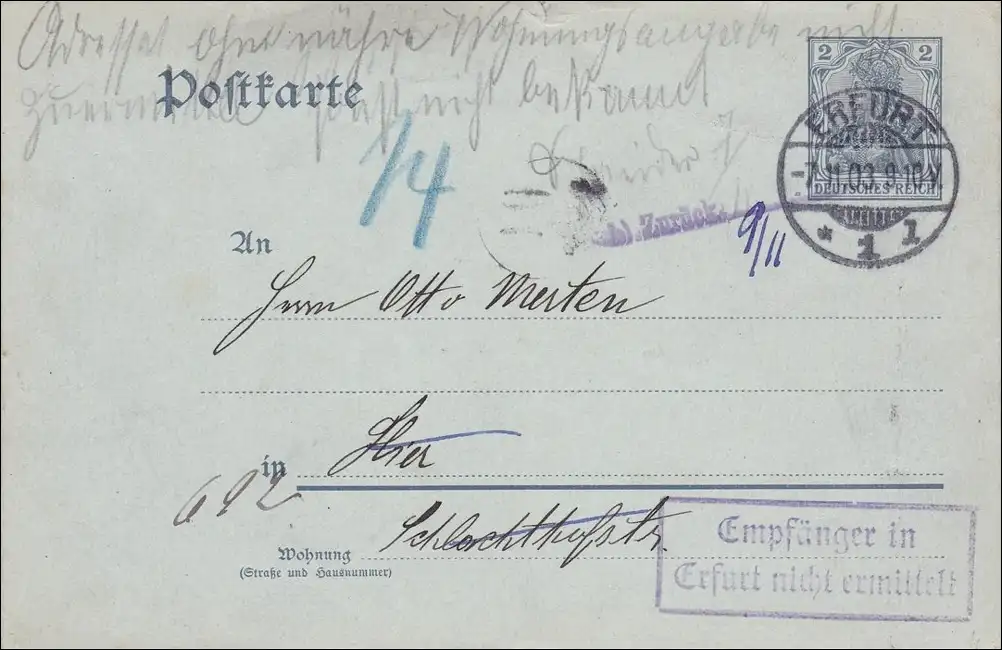 Adressat ohne nähre Wohnungsangabe nicht
zu ermitteln ist nicht bekannt
Postkarte
2 2
DEUTSCHES REICH
ERFURT
-7.11.03.9-10V.
* 1 1
1/4
Zurück.
9/11
An
Herrn Otto Merten
in Hier
692
Schlachthofstr.
Wohnung
(Straße und Hausnummer)
Empfänger in
Erfurt nicht ermittelt